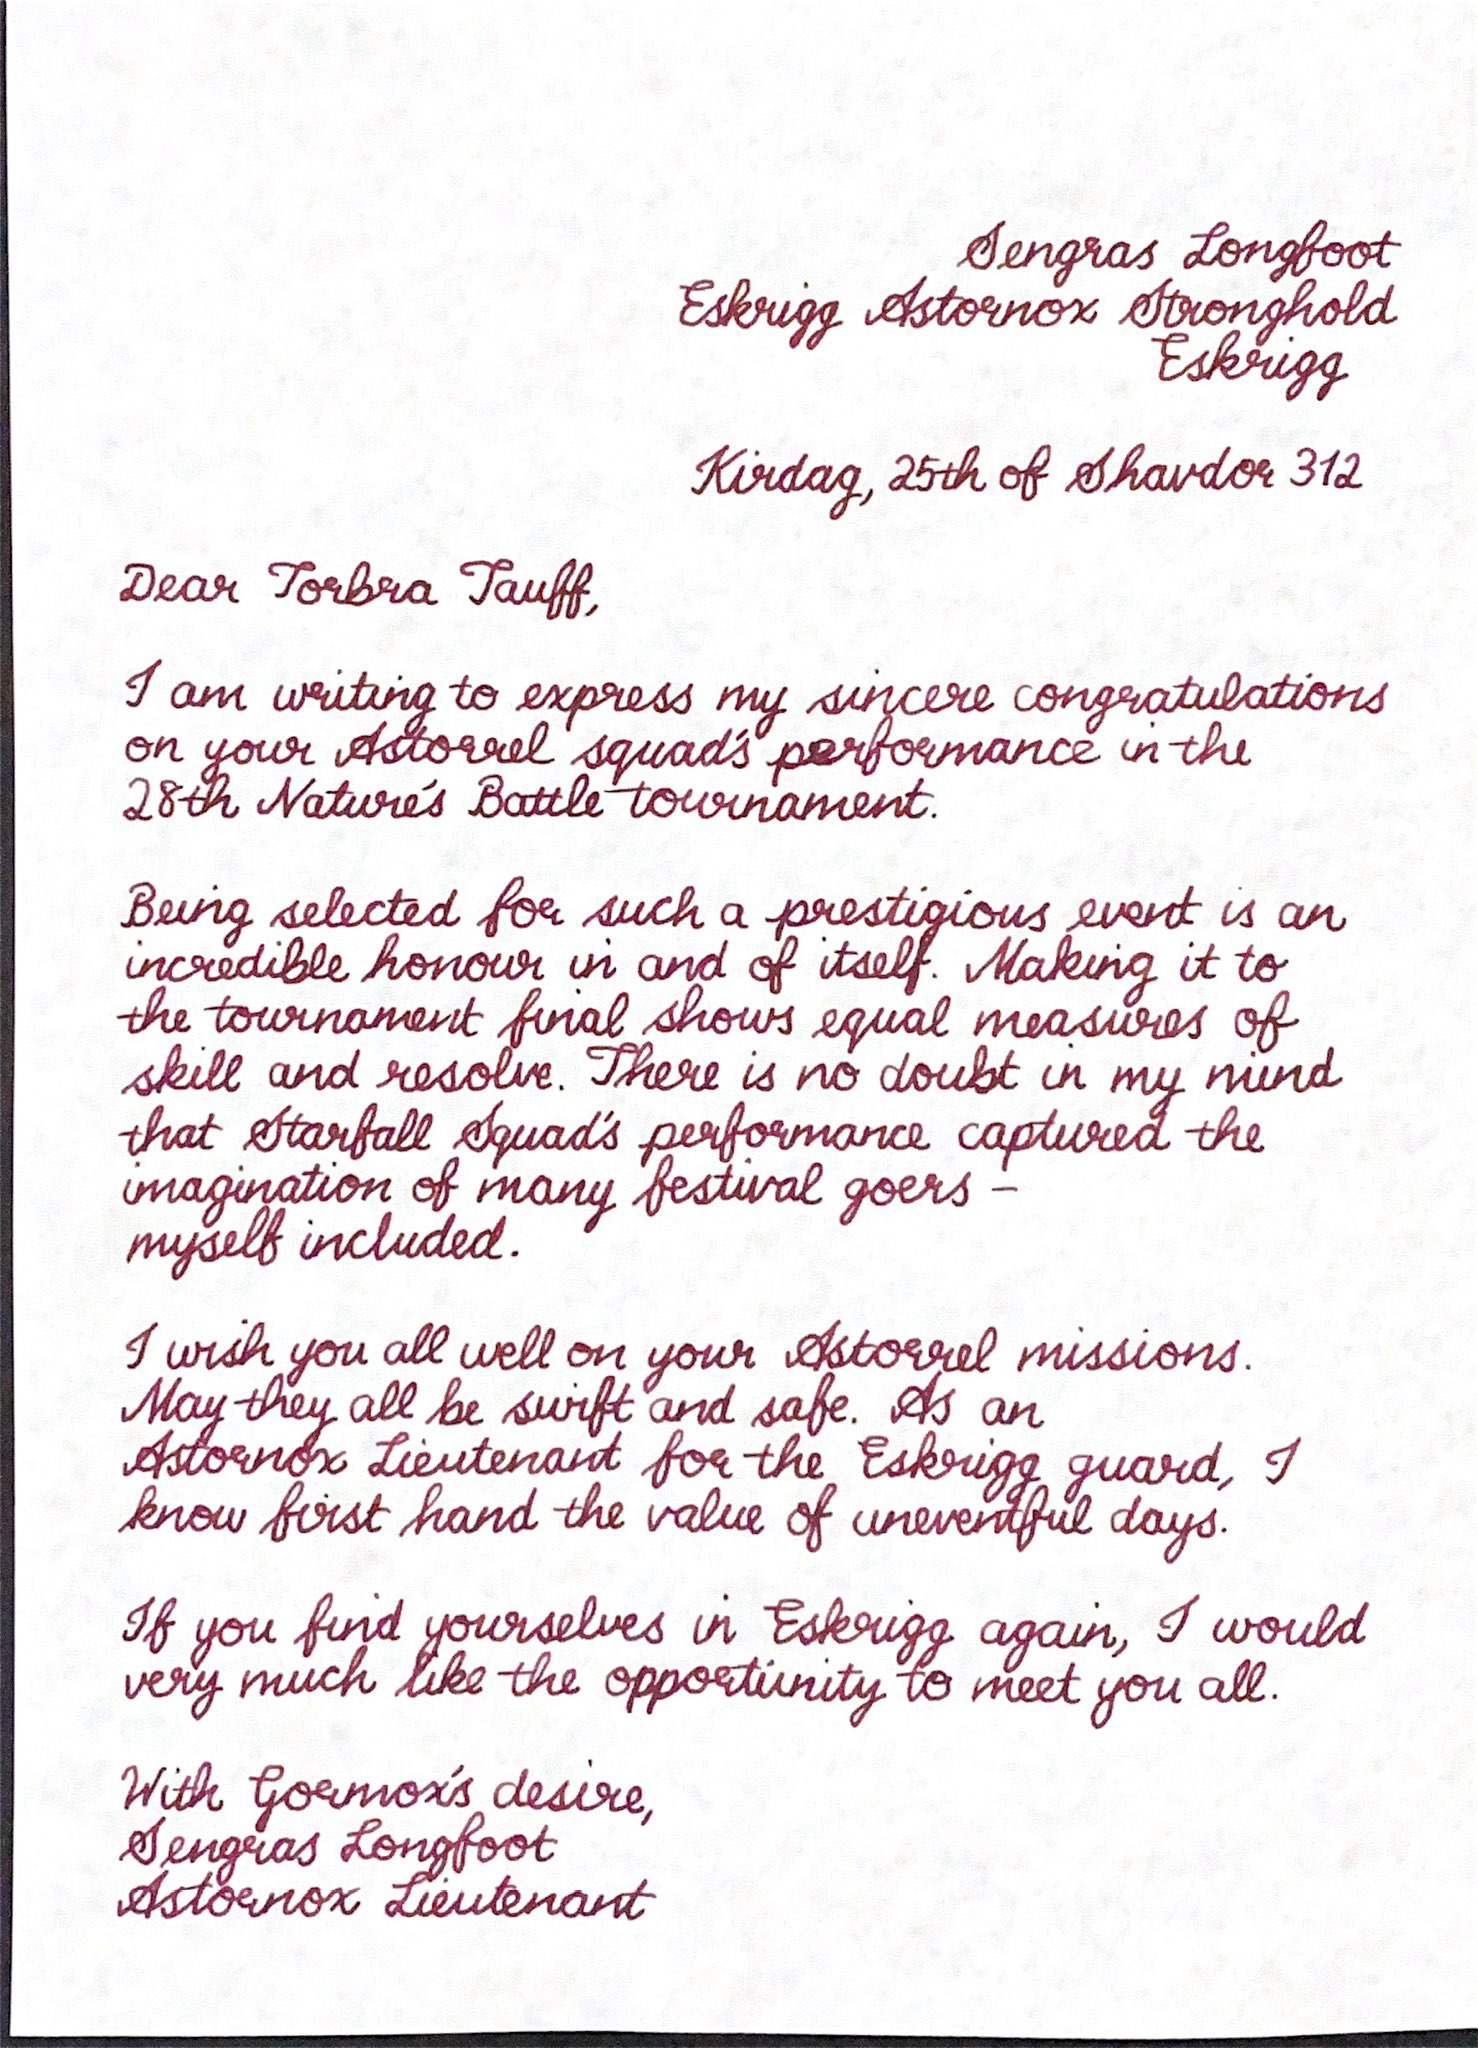 Sengras Longfoot
Eskrigg Astornox Stronghold
Eskrigg
Kirdag, 25th of Shavdor 312
Dear Torbra Tauff,
I am writing to express my sincere congratulations
on your Astorrel squad's performance in the
28th Nature's Battle tournament.
Being selected for such a prestigious event is an
incredible honour in and of itself. Making it to
the tournament final shows equal measures of
skill and resolve. There is no doubt in my mind
that Starfall Squad's performance captured the
imagination of many festival goers –
myself included.
I wish you all well on your Astorrel missions.
May they all be swift and safe. As an
Astornox Lieutenant for the Eskrigg guard, I
know first hand the value of uneventful days.
If you find yourselves in Eskrigg again, I would
very much like the opportunity to meet you all.
With Gormox's desire,
Sengras Longfoot
Astornox Lieutenant